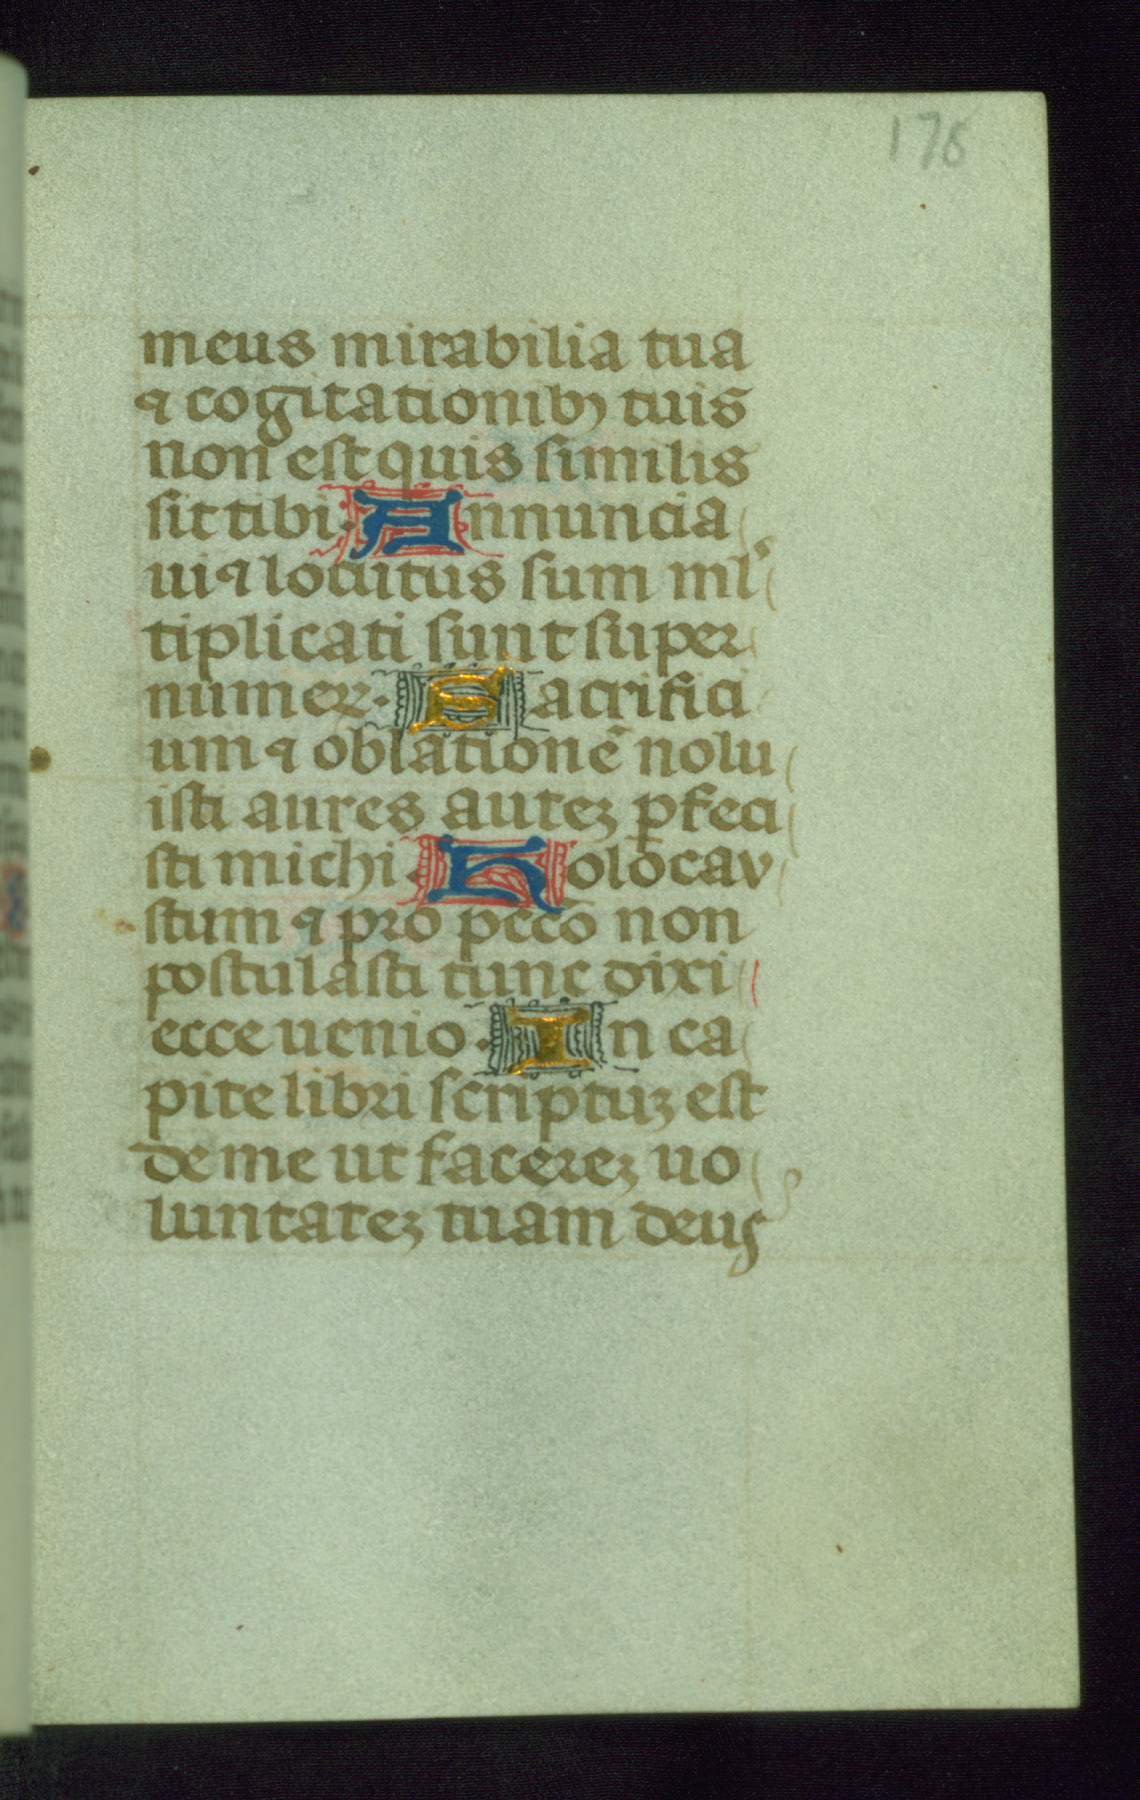 176
meus mirabilia tua
⁊ cogitationibꝫ tuis
non est quis similis
sit tibi. Annuncia
ui ⁊ locutus sum ml'
tiplicati sunt super
numer. Sacrifici
um ⁊ oblationē nolu
isti aures auteꝫ ꝑfeci
sti michi. Holocav
stum ⁊ pro pccō non
postulasti tunc dixi
ecce uenio. In ca
pite libri scriptuꝫ est
de me ut facereꝫ uo
luntateꝫ tuam deus